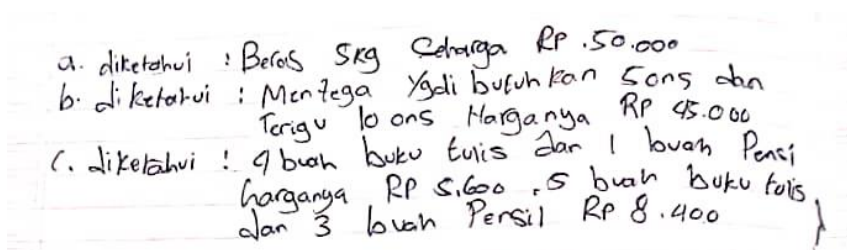 a. diketahui : Beras 5kg Seharga Rp .50.000
b. diketahui : Mentega Ygdi butuhkan 5ons dan
Terigu 10 ons Harganya Rp 45.000
C. diketahui : 4 buah buku tulis dan 1 buah Pensi
harganya RP 5.600 , 5 buah buku tulis
dan 3 buah Pensil Rp 8.400